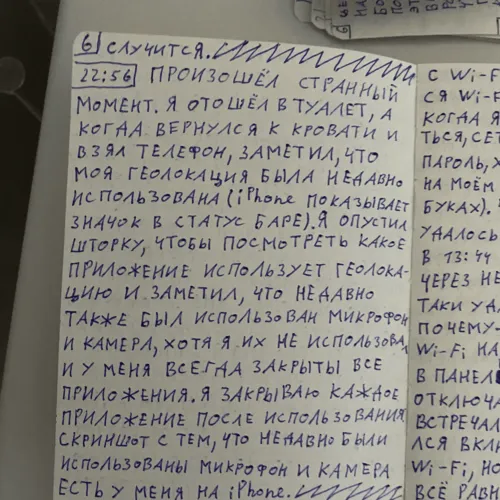 6) СЛУЧИТСЯ.
22:56 ПРОИЗОШЁЛ СТРАННЫЙ
МОМЕНТ. Я ОТОШЁЛ В ТУАЛЕТ, А
КОГДА ВЕРНУЛСЯ К КРОВАТИ И
ВЗЯЛ ТЕЛЕФОН, ЗАМЕТИЛ, ЧТО
МОЯ ГЕОЛОКАЦИЯ БЫЛА НЕДАВНО
ИСПОЛЬЗОВАНА (iPhone ПОКАЗЫВАЕТ
ЗНАЧОК В СТАТУС БАРЕ). Я ОПУСТИЛ
ШТОРКУ, ЧТОБЫ ПОСМОТРЕТЬ КАКОЕ
ПРИЛОЖЕНИЕ ИСПОЛЬЗУЕТ ГЕОЛОКА-
ЦИЮ И ЗАМЕТИЛ, ЧТО НЕДАВНО
ТАКЖЕ БЫЛ ИСПОЛЬЗОВАН МИКРОФОН
И КАМЕРА, ХОТЯ Я ИХ НЕ ИСПОЛЬЗОВА
И У МЕНЯ ВСЕГДА ЗАКРЫТЫ ВСЕ
ПРИЛОЖЕНИЯ. Я ЗАКРЫВАЮ КАЖДОЕ
ПРИЛОЖЕНИЕ ПОСЛЕ ИСПОЛЬЗОВАНИЯ
СКРИНШОТ С ТЕМ, ЧТО НЕДАВНО БЫЛИ
ИСПОЛЬЗОВАНЫ МИКРОФОН И КАМЕРА
ЕСТЬ У МЕНЯ НА iPhone.
С Wi-F
СЯ Wi-F
КОГДА Я
ТЬСЯ, СЕТ
ПАРОЛЬ, Х
НА МОЁМ
БУКАХ).
УДАЛОСЬ
В 13:44
ЧЕРЕЗ НЕ
ТАКИ УДА
ПОЧЕМУ-
Wi-Fi НА
В ПАНЕЛ
ОТКЛЮЧА
ВСТРЕЧАЛ
ЛСЯ ВКЛ
Wi-Fi, НО
ВСЁ РАВ